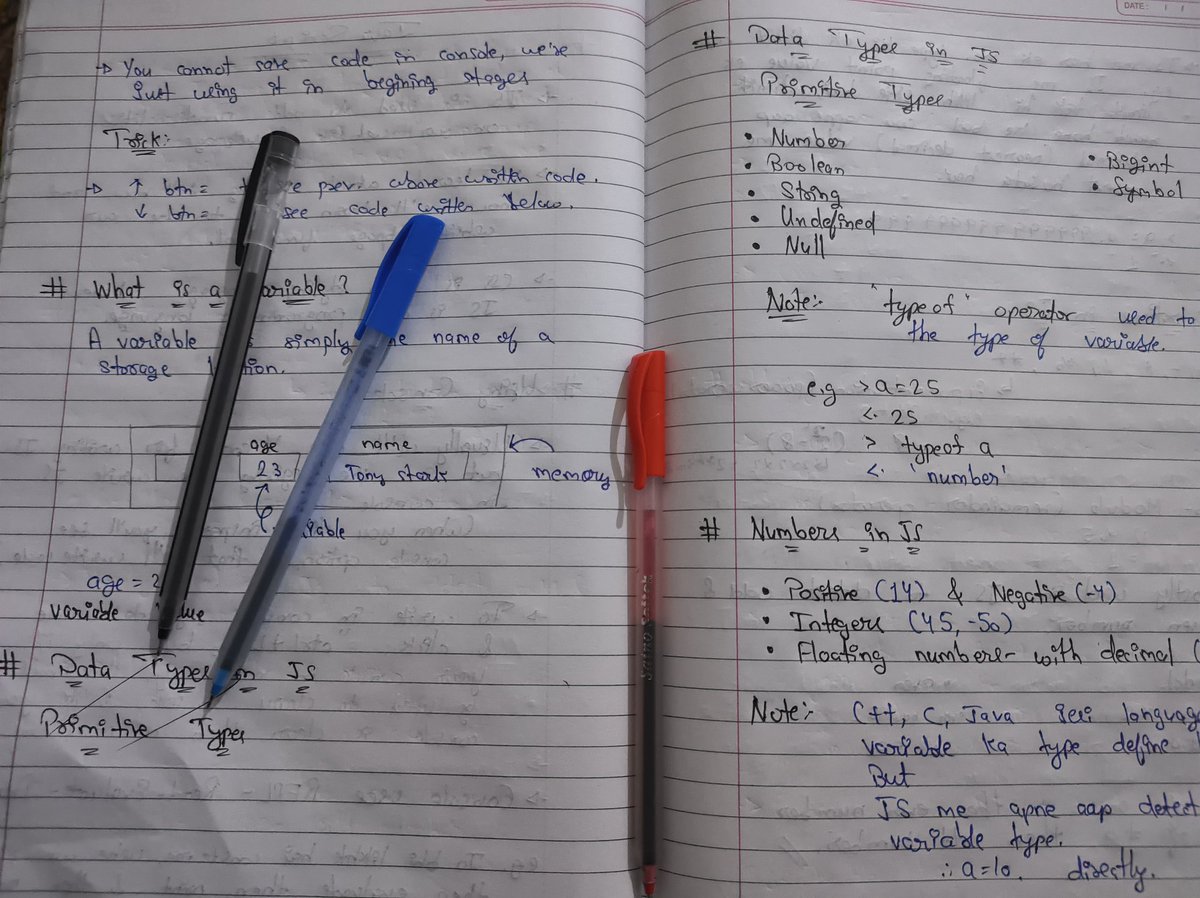 → You cannot save code in console, we're
just using it in begining stages
Trick:
→ ↑ btn = prev. above written code.
↓ btn = see code written below.
# What is a variable?
A variable simply name of a
storage
age name
23 Tony stark
memory
age =
variable
# Data Types in JS
Primitive Types
DATE: / /
# Data Types in JS
Primitive Types
• Number
• Boolean
• String
• Undefined
• Null
• Bigint
• Symbol
Note:- "typeof" operator used to
the type of variable.
e.g > a = 25
<· 25
> typeof a
<· 'number'
# Numbers in JS
• Positive (14) & Negative (-4)
• Integers (45, -50)
• Floating numbers - with decimal (
Note:- C++, C, Java jesi language
variable ka type define
But
JS me apne aap detect
variable type.
∴ a=10. directly.